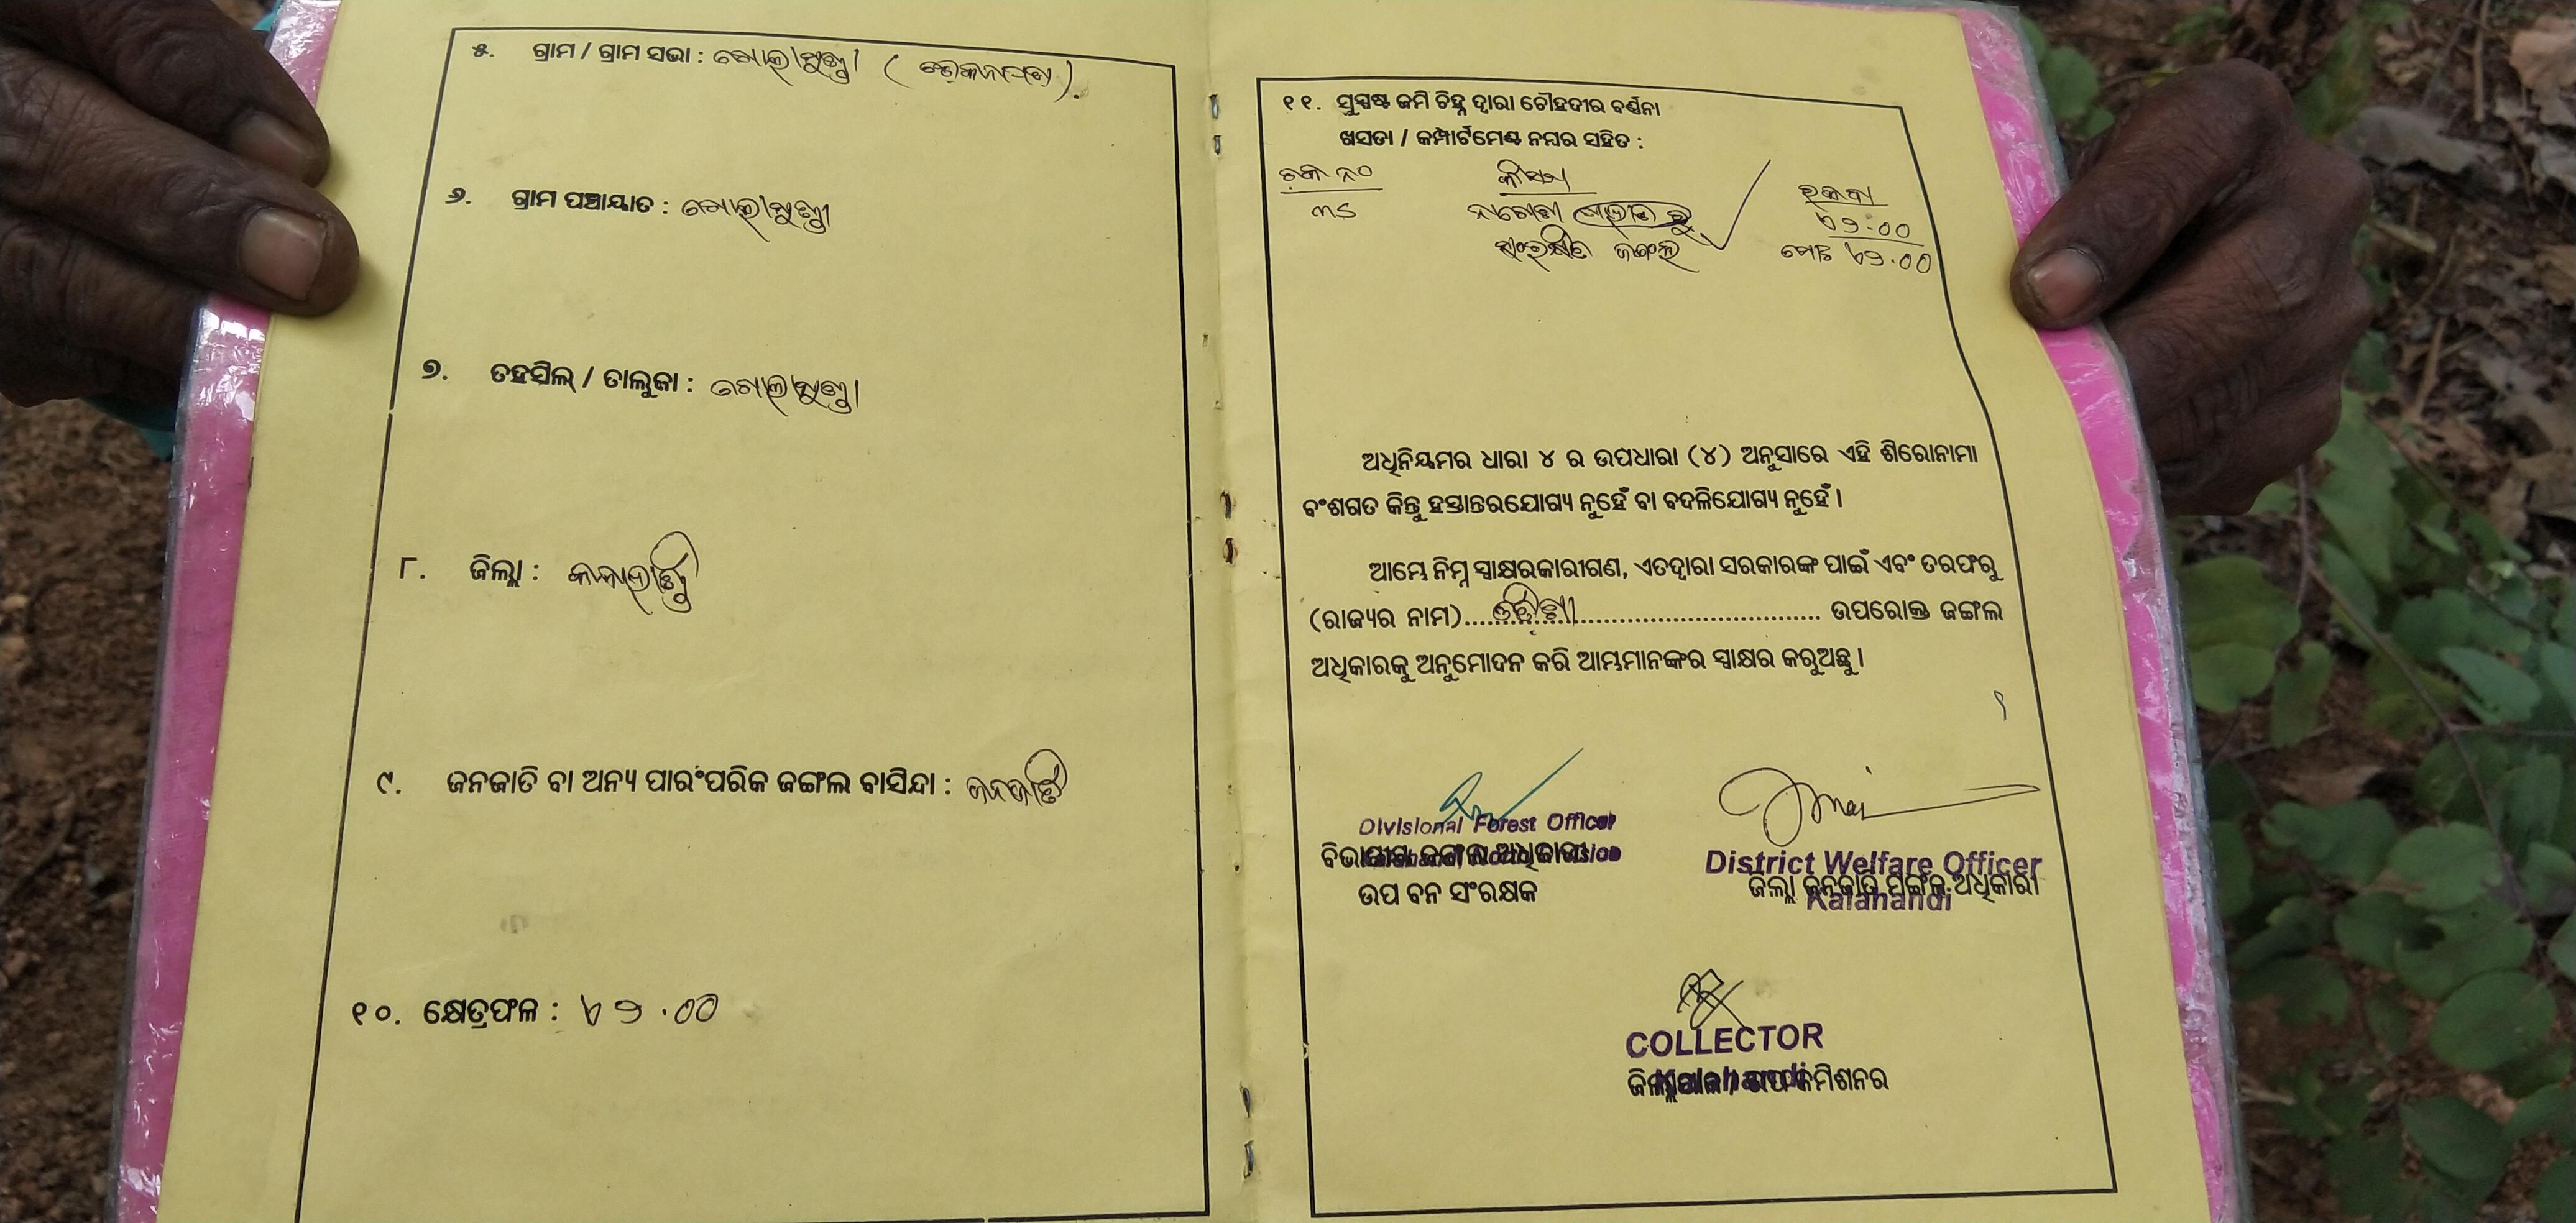 ୫. ଗ୍ରାମ / ଗ୍ରାମ ସଭା : ଗୋଲାମୁଣ୍ଡା
୬. ଗ୍ରାମ ପଞ୍ଚାୟାତ : ଗୋଲାମୁଣ୍ଡା
୭. ତହସିଲ୍ / ତାଲୁକା : ଗୋଲାମୁଣ୍ଡା
୮. ଜିଲ୍ଲା : କଳାହାଣ୍ଡି
୯. ଜନଜାତି ବା ଅନ୍ୟ ପାରଂପରିକ ଜଙ୍ଗଲ ବାସିନ୍ଦା : ଜନଜାତି
୧୦. କ୍ଷେତ୍ରଫଳ : ୧୨.୦୦
୧୧. ସୁସ୍ପଷ୍ଟ ଜମି ଚିହ୍ନ ଦ୍ୱାରା ଚୌହଦୀର ବର୍ଣନା
ଖସଡା / କମ୍ପାର୍ଟମେଣ୍ଟ ନମ୍ବର ସହିତ :
କିସମ ରକବା
ସଂରକ୍ଷିତ ଜଙ୍ଗଲ
ଅଧିନିୟମର ଧାରା ୪ ର ଉପଧାରା (୪) ଅନୁସାରେ ଏହି ଶିରୋନାମା
ବଂଶଗତ କିନ୍ତୁ ହସ୍ତାନ୍ତରଯୋଗ୍ୟ ନୁହେଁ ବା ବଦଳିଯୋଗ୍ୟ ନୁହେଁ ।
ଆମ୍ଭେ ନିମ୍ନ ସ୍ୱାକ୍ଷରକାରୀଗଣ, ଏତଦ୍ୱାରା ସରକାରଙ୍କ ପାଇଁ ଏବଂ ତରଫରୁ
(ରାଜ୍ୟର ନାମ)....ଓଡ଼ିଶା.................... ଉପରୋକ୍ତ ଜଙ୍ଗଲ
ଅଧିକାରକୁ ଅନୁମୋଦନ କରି ଆମ୍ଭମାନଙ୍କର ସ୍ୱାକ୍ଷର କରୁଅଛୁ ।
Divisional Forest Officer
ବିଭାଗୀୟ ଜଙ୍ଗଲ ଅଧିକାରୀ
ଉପ ବନ ସଂରକ୍ଷକ
District Welfare Officer
ଜିଲ୍ଲା ଜନଜାତି ମଙ୍ଗଳ ଅଧିକାରୀ
Kalahandi
COLLECTOR
Kalahandi
ଜିଲ୍ଲାପାଳ / ଉପ କମିଶନର